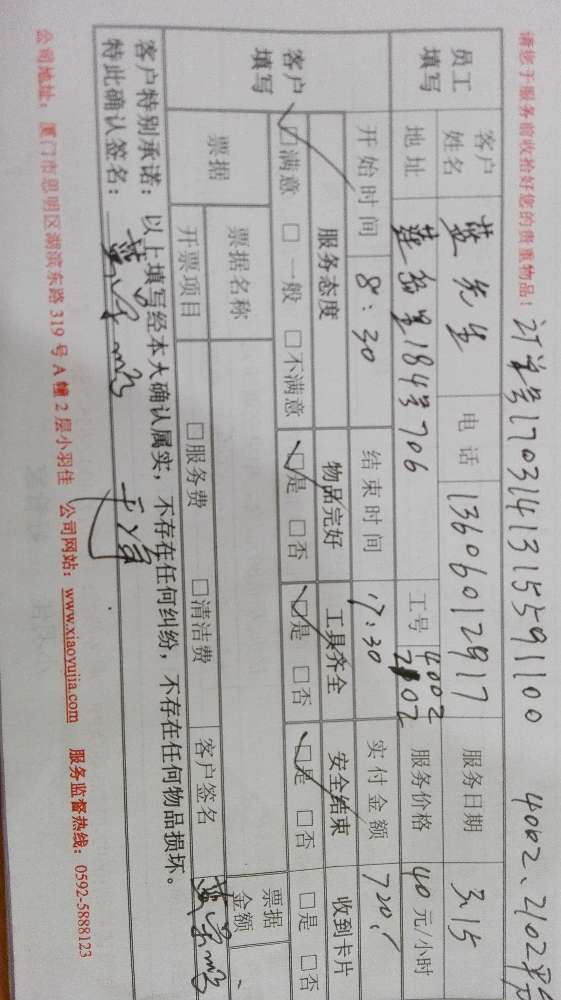 请您于服务前收拾好您的贵重物品！ 订单号1703141315591100 4002、2102
员工填写 客户姓名 蓝先生 电话 13606012917 服务日期 3.15
地址 莲岳里184号706 工号 4002 2102 服务价格 40元/小时
客户填写 开始时间 8:30 结束时间 17:30 实付金额 720
服务态度 物品完好 工具齐全 安全结束 收到卡片
□满意 □一般 □不满意 □是 □否 □是 □否 □是 □否 □是 □否
票据 票据名称 票据金额
开票项目 □服务费 □清洁费 客户签名
客户特别承诺：以上填写经本人确认属实，不存在任何纠纷，不存在任何物品损坏。
特此确认签名：
公司地址：厦门市思明区湖滨东路319号A幢2层小羽佳 公司网站：www.xiaoyujia.com 服务监督热线：0592-5888123